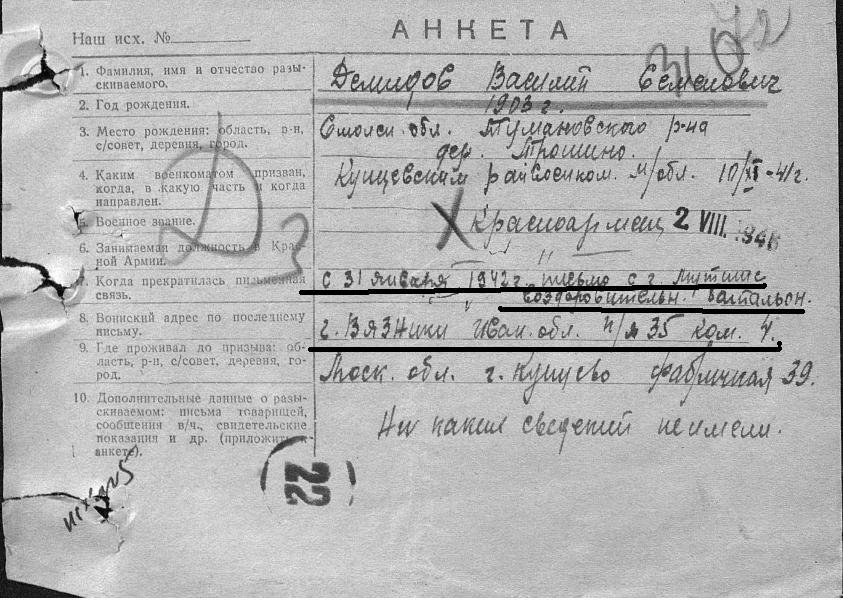 АНКЕТА
Наш исх. №
1. Фамилия, имя и отчество разы-
скиваемого.
Демидов Василий Семенович
2. Год рождения.
1903 г.
3. Место рождения: область, р-н,
с/совет, деревня, город.
Смолен. обл. Тумановского р-на
дер. Трошино.
4. Каким военкоматом призван,
когда, в какую часть и когда
направлен.
Кунцевским райвоенком. М/обл. 10/XI-41г.
5. Военное звание.
Красноармеец
2 VIII. 194
6. Занимаемая должность в Крас-
ной Армии.
"
7. Когда прекратилась письменная
связь.
с 31 января 1942 г. письмо с г.
батальон.
8. Воинский адрес по последнему
письму.
г. Вязники Иван. обл. п/я 35 ком. 4.
9. Где проживал до призыва: об-
ласть, р-н, с/совет, деревня, го-
род.
Моск. обл. г. Кунцево Фабричная 39.
10. Дополнительные данные о разы-
скиваемом: письма товарищей,
сообщения в/ч., свидетельские
показания и др. (приложить к
анкете).
Ни каких сведений не имели.
22